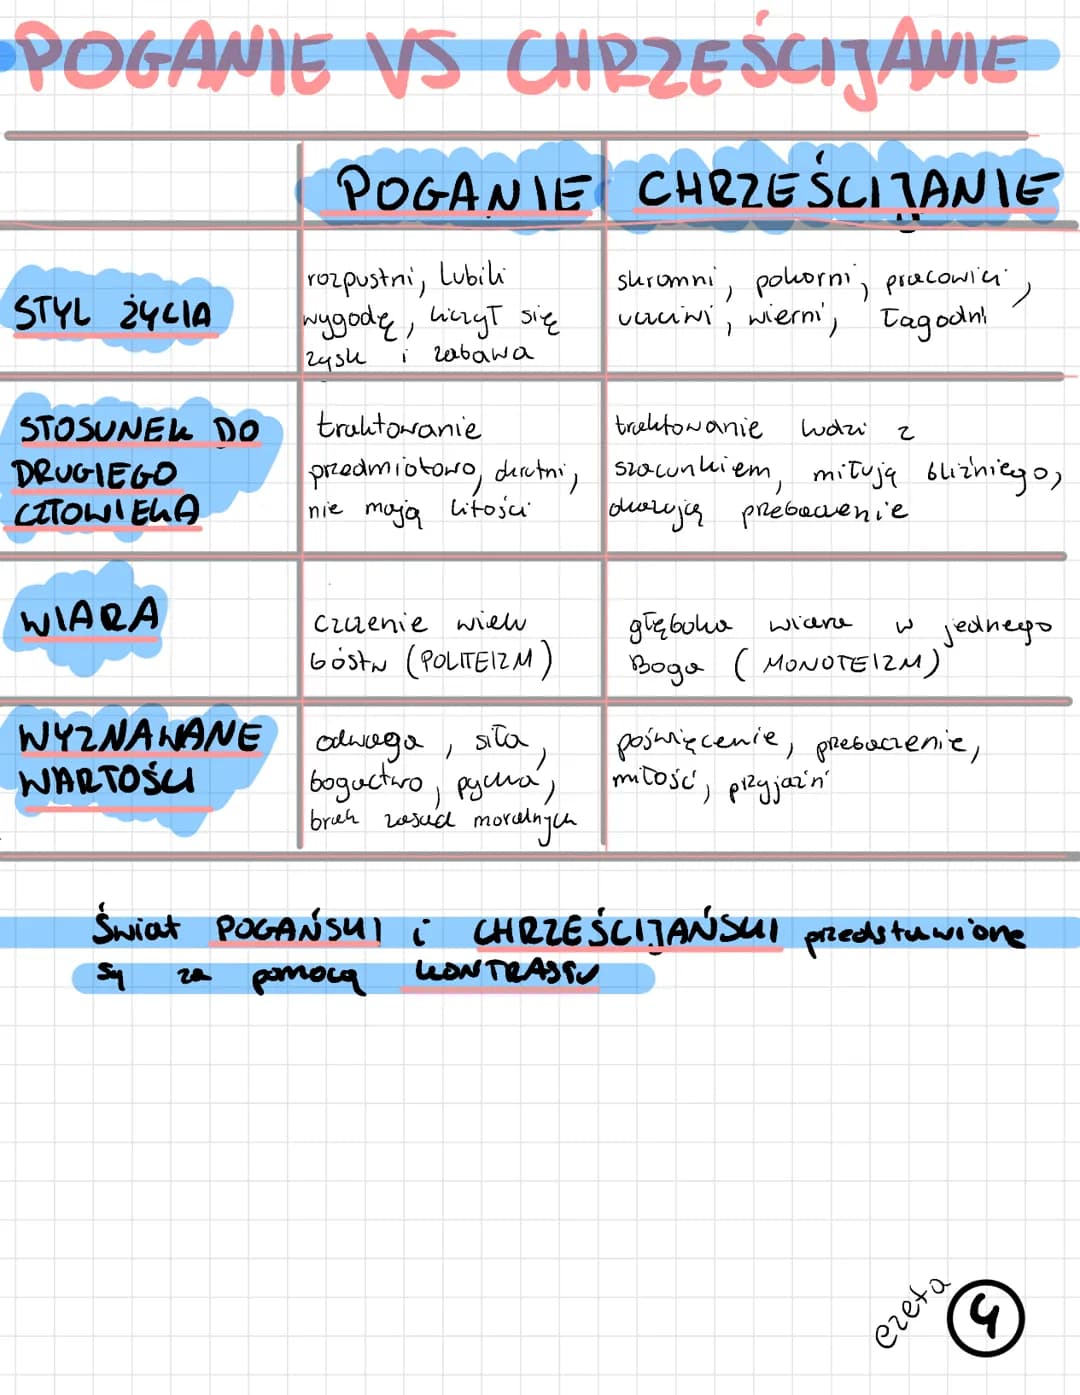 POGANIE VS CHRZEŚCIJANIE
POGANIE CHRZEŚCIJANIE
STYL ŻYCIA
rozpustni, lubili
wygodę, liczył się
zysk i zabawa
skromni, pokorni, pracowici,
uczciwi, wierni, łagodni
STOSUNEK DO
DRUGIEGO
CZŁOWIEKA
traktowanie
przedmiotowo, okrutni,
nie mają litości
traktowanie ludzi z
szacunkiem, miłują bliźniego,
okazują przebaczenie
WIARA
czczenie wielu
bóstw (POLITEIZM)
głęboka wiara w jednego
Boga (MONOTEIZM)
WYZNAWANE
WARTOŚCI
odwaga, siła,
bogactwo, pycha,
brak zasad moralnych
poświęcenie, przebaczenie,
miłość, przyjaźń
Świat POGAŃSKI i CHRZEŚCIJAŃSKI przedstawione
są za pomocą KONTRASTU
ezeta 4